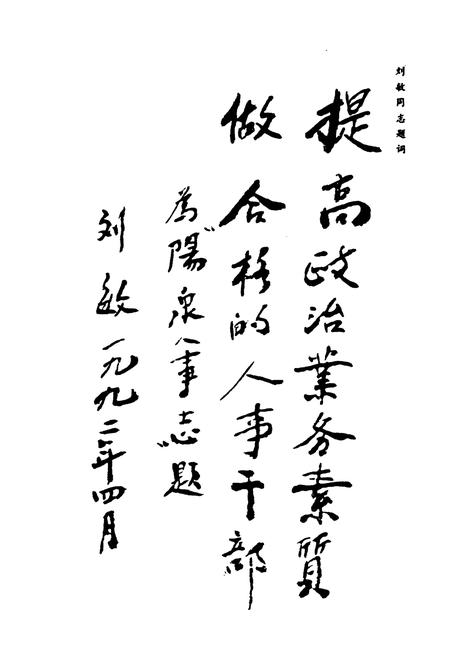 刘敏同志题词
提高政治業务素質
做合格的人事干部
為陽泉《人事志》题
刘敏一九九二年四月